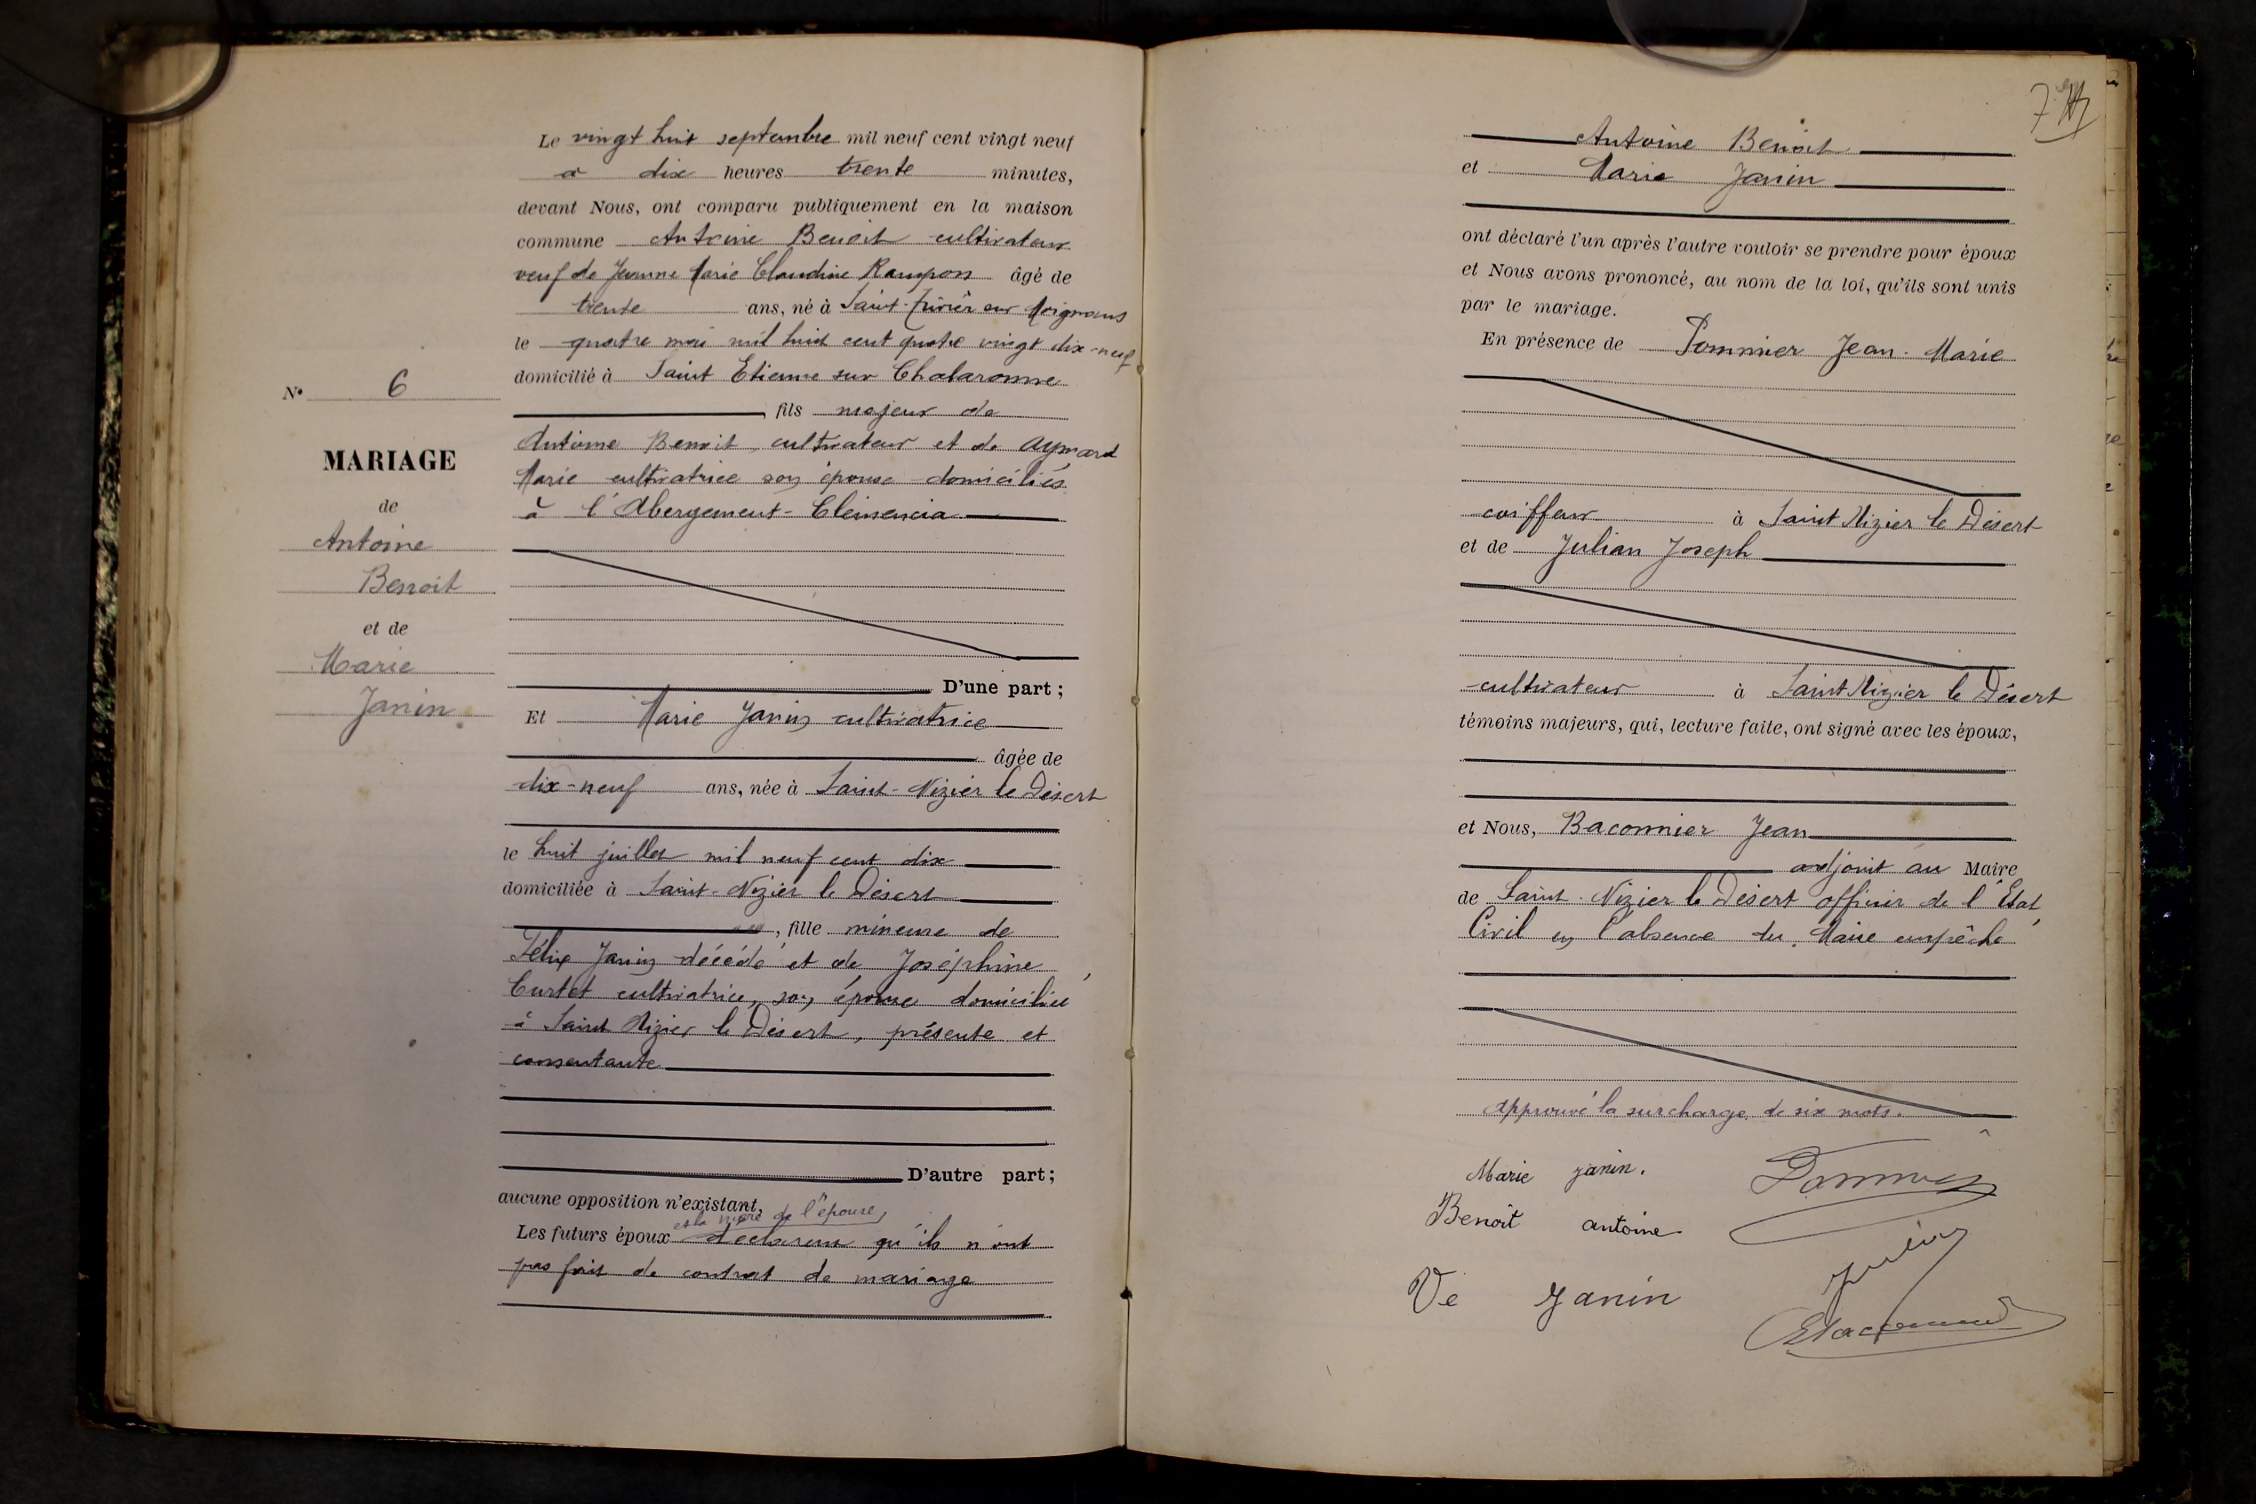 N° 6
MARIAGE
de
Antoine
Benoit
et de
Marie
Janin
Le vingt huit septembre mil neuf cent vingt neuf
à dix heures trente minutes,
devant Nous, ont comparu publiquement en la maison
commune Antoine Benoit cultivateur
veuf de Jeanne Marie Claudine Rampon âgé de
trente ans, né à Saint-Trivier sur Moignans
le quatre mai mil huit cent quatre vingt dix-neuf
domicilié à Saint Etienne sur Chalaronne
, fils majeur de
Antoine Benoit, cultivateur et de Aymard
Marie cultivatrice son épouse domiciliés
à l'Abergement-Clémencia
D'une part ;
Et Marie Janin cultivatrice
âgée de
dix-neuf ans, née à Saint-Nizier le Désert
le huit juillet mil neuf cent dix
domiciliée à Saint-Nizier le Désert
, fille mineure de
Félix Janin décédé et de Joséphine
Curtet cultivatrice, son épouse domiciliée
à Saint Nizier le Désert, présente et
consentante
D'autre part ;
aucune opposition n'existant,
et la mère de l'épouse,
Les futurs époux déclarent qu'ils n'ont
pas fait de contrat de mariage
7
Antoine Benoit
et Marie Janin
ont déclaré l'un après l'autre vouloir se prendre pour époux
et Nous avons prononcé, au nom de la loi, qu'ils sont unis
par le mariage.
En présence de Pommier Jean-Marie
coiffeur à Saint Nizier le Désert
et de Julian Joseph
cultivateur à Saint Nizier le Désert
témoins majeurs, qui, lecture faite, ont signé avec les époux,
et Nous, Baconnier Jean
adjoint au Maire
de Saint-Nizier le Désert officier de l'Etat
Civil en l'absence du Maire empêché
approuvé la surcharge de six mots.
Marie janin.
Pommier
Benoit antoine
Julian
Ve Janin
Baconnier